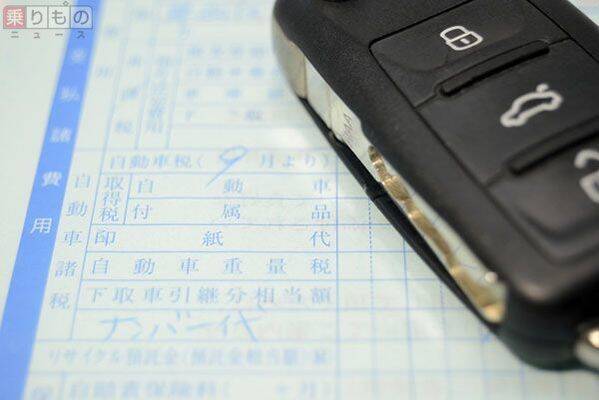 乗りもの
ニュース
諸費用
自動車諸税
自動車税(9月より)
取得税
自動車
付属品
印紙代
自動車重量税
下取車引継分相当額
ナンバー代
リサイクル預託金(預託金相当額)
自賠責保険料( ヶ月)